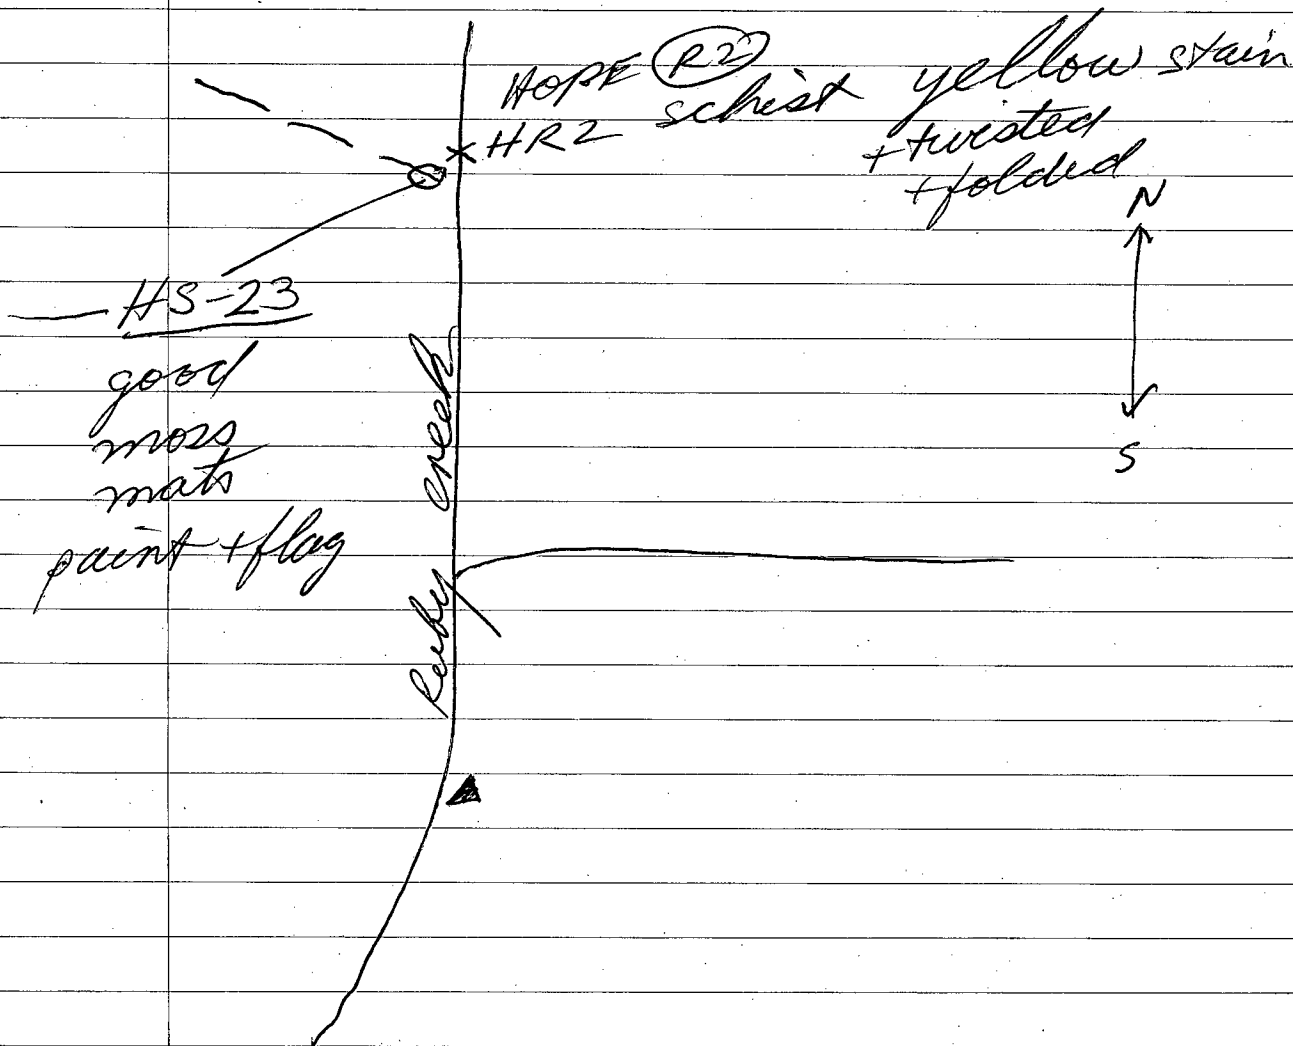 HOPE R2
schist yellow stain
HR2
+ twisted
+ folded
N
S
HS-23
good
moss
mats
paint + flag
Ruby creek